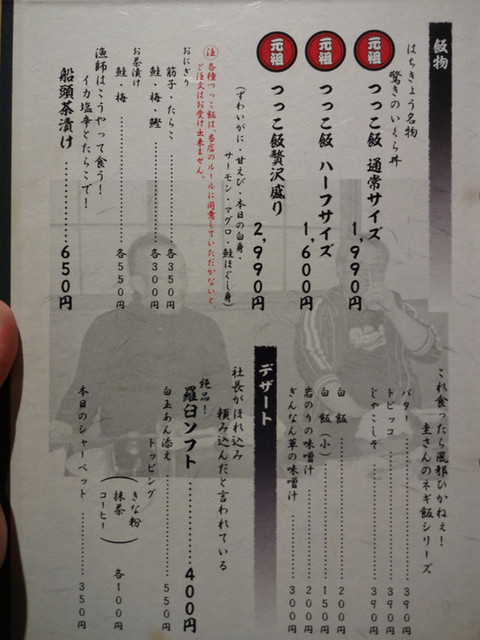 飯物
はちきょう名物
驚きのいくら丼
元祖
つっこ飯 通常サイズ
1,990円
元祖
つっこ飯 ハーフサイズ
1,600円
元祖
つっこ飯贅沢盛り
2,990円
(ずわいがに・甘えび・本日の白身・
サーモン・マグロ・鮭ほぐし身)
注 各種つっこ飯は、当店のルールに同意していただかないと、
ご注文はお受け出来ません。
おにぎり
筋子・たらこ……各350円
鮭・梅・鰹……各300円
お茶漬け
鮭・梅……各550円
漁師はこうやって食う!
イカ塩辛とたらこで!
船頭茶漬け……650円
これ食ったら風邪ひかねぇ!
圭さんのネギ飯シリーズ
バター……390円
トビッコ……390円
じゃこしそ……390円
白飯……200円
白飯(小)……150円
岩のりの味噌汁……200円
ぎんなん草の味噌汁……300円
デザート
社長がほれ込み
頼み込んだと言われている
絶品!
羅臼ソフト……400円
白玉あん添え……550円
トッピング
(きな粉
抹茶
コーヒー)
各100円
本日のシャーベット……350円